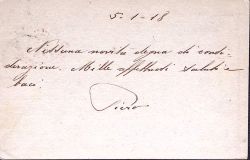 5-1-18
Nessuna novità degna di consi-
derazione. Mille affettuosi saluti e
baci.
Piero